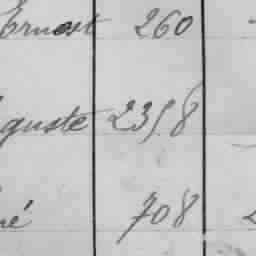 Ernest 260
guste 2358
né 708